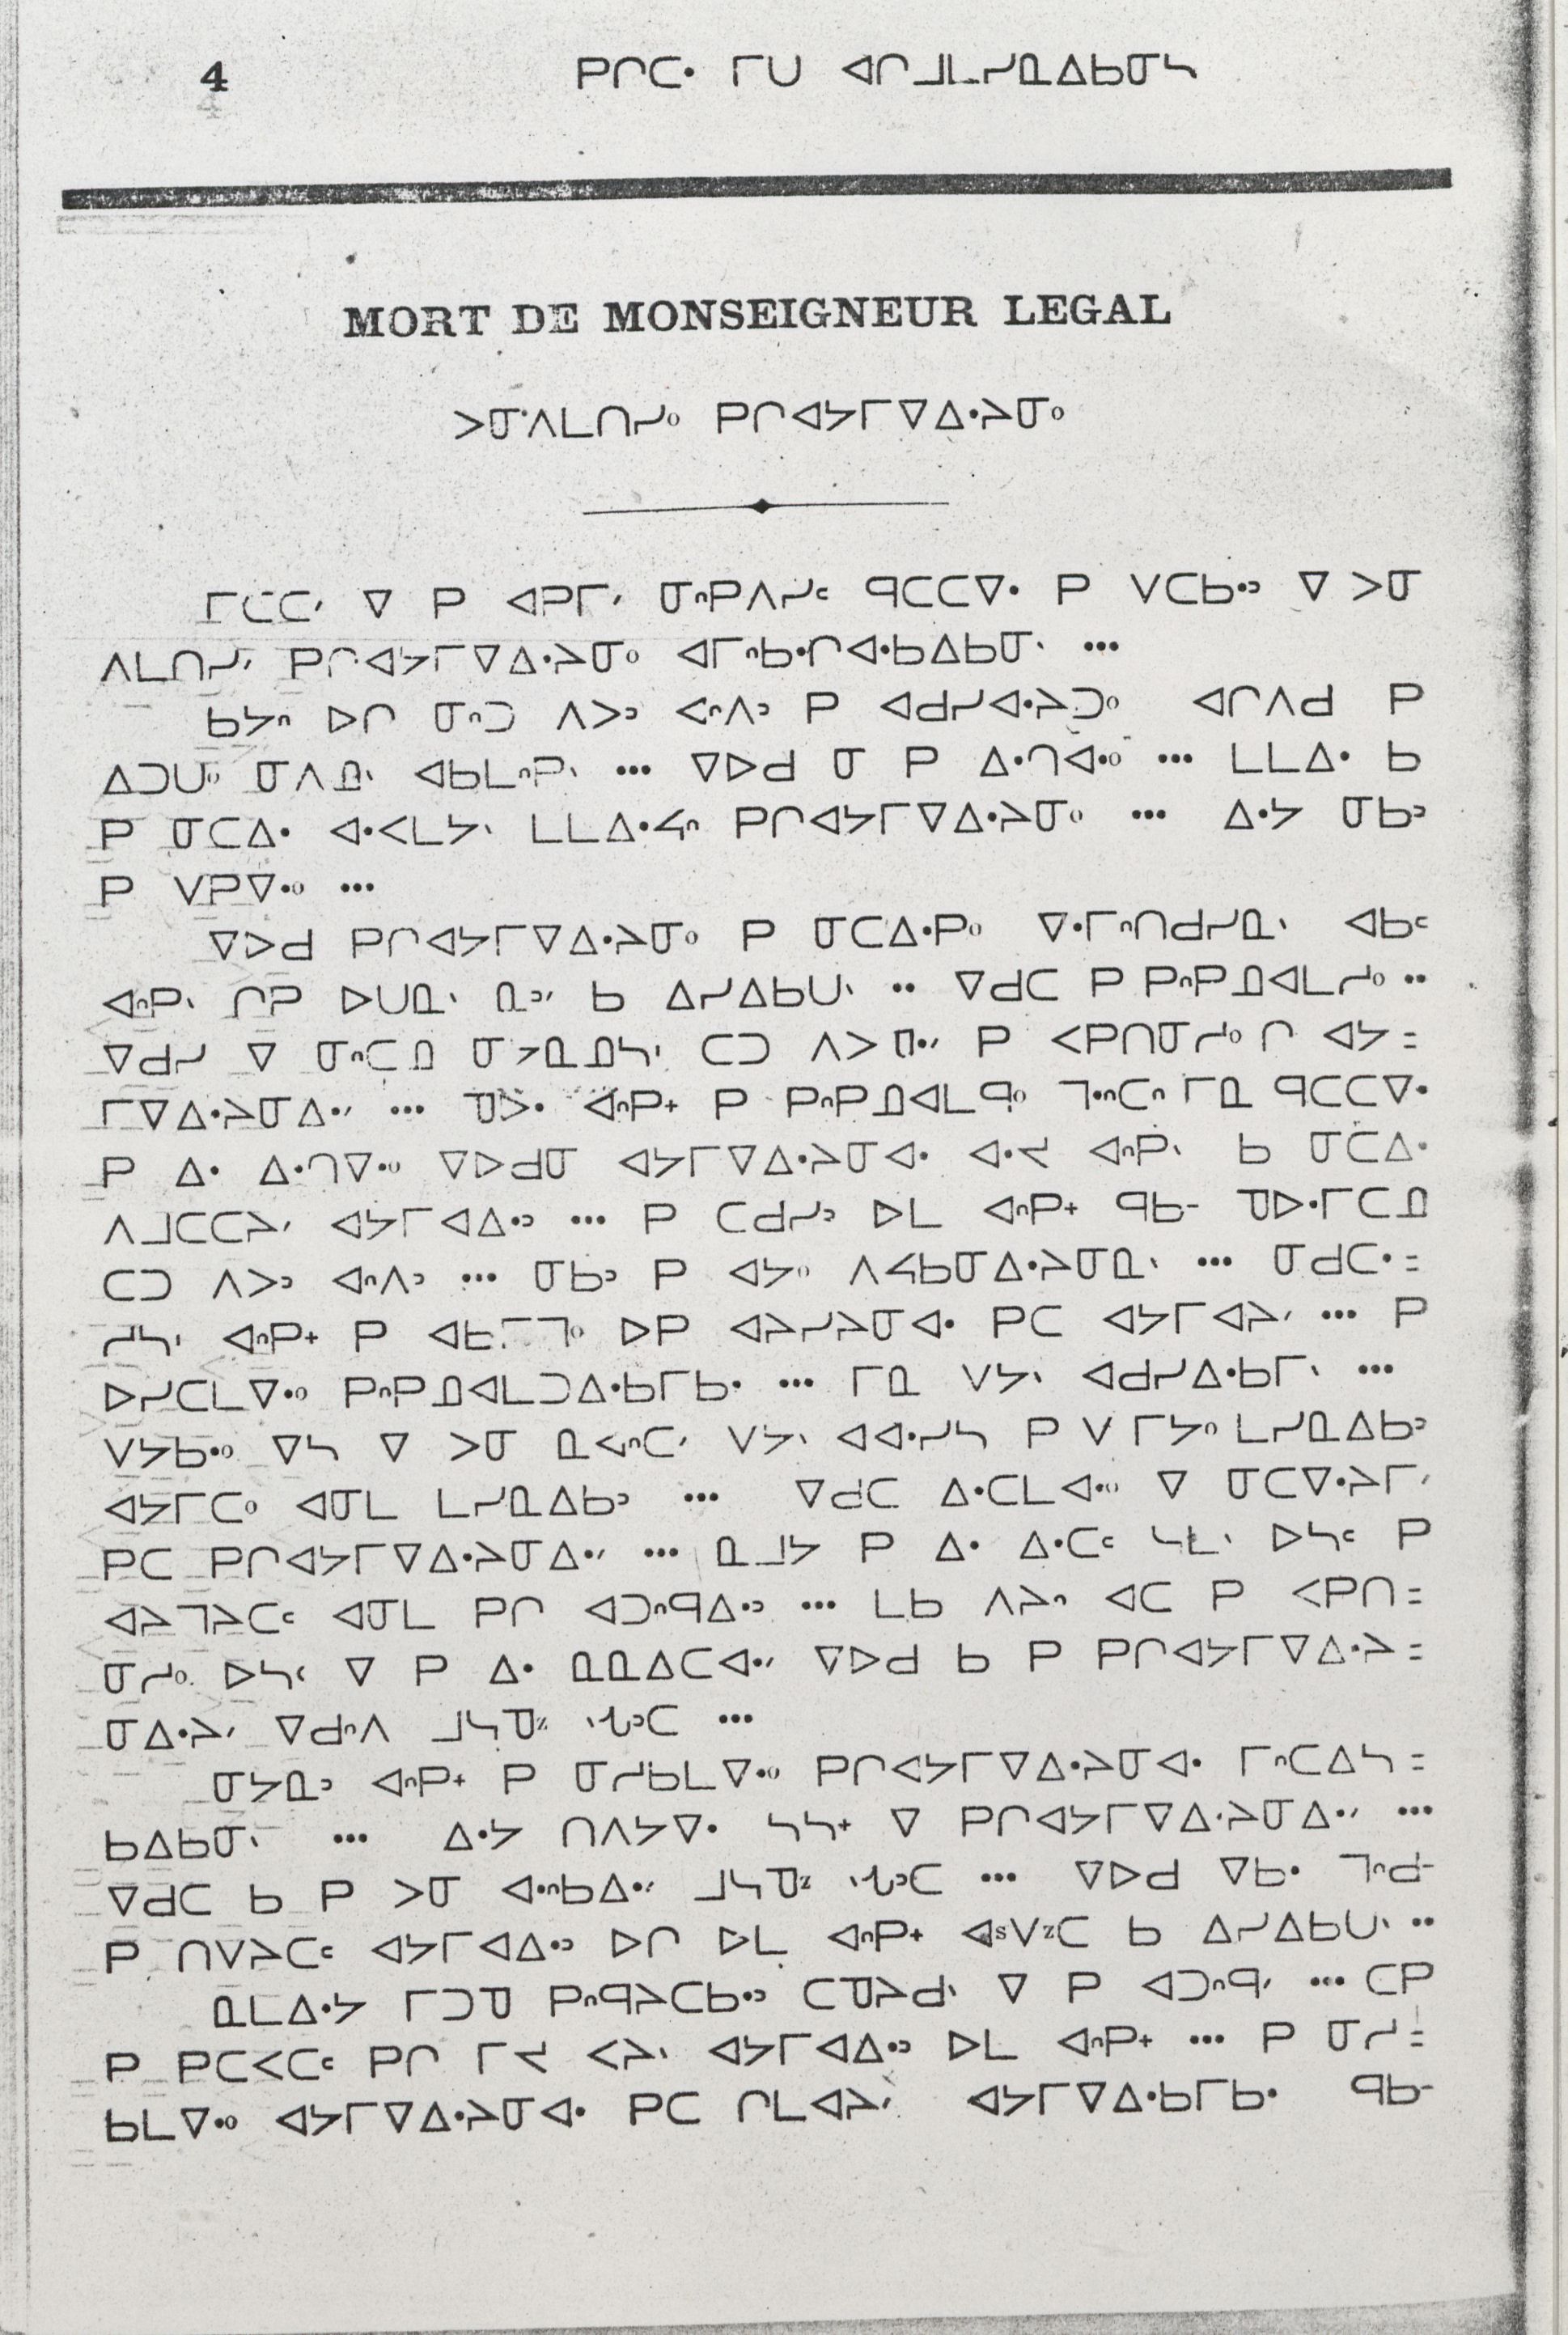 4 ᑭᒋᑕᐧ ᒥᑌ ᐊᒋᒧᒪᓯᓇᐃᑲᓂᓴ
MORT DE MONSEIGNEUR LEGAL
ᐳᓂᐱᒪᑎᓯᐤ ᑭᒋᐊᔭᒥᐁᐃᐧᔨᓂᐤ
ᒥᑕᑕᐟ ᐁ ᑭ ᐊᑭᒥᐟ ᓂᐢᑭᐱᓯᑦ ᑫᑕᑕᐁᐧ ᑭ ᐯᑕᑲᐧᐣ ᐁ ᐳᓂ
ᐱᒪᑎᓯᐟ ᑭᒋᐊᔭᒥᐁᐃᐧᔨᓂᐤ ᐊᒥᐢᑲᐧᒋᐊᐧᑲᐃᑲᓂᐠ ...
ᑲᔭᐢ ᐅᒋ ᓂᐢᑐ ᐱᐳᐣ ᐸᐢᐱᐣ ᑭ ᐊᑯᓯᐊᐧᔨᑐᐤ ᐊᒋᐱᑯ ᑭ
ᐃᑐᑌᐤ ᓂᐱᓇᐠ ᐊᑲᒪᐢᑭᐠ ... ᐁᐅᑯ ᓂ ᑭ ᐃᐧᒋᐊᐧᐤ ... ᒪᒪᐃᐧ ᑲ
ᑭ ᓂᑕᐃᐧ ᐊᐧᐸᒪᔭᐠ ᒪᒪᐃᐧᔭᐢ ᑭᒋᐊᔭᒥᐁᐃᐧᔨᓂᐤ ... ᐃᐧᔭ ᓂᑲᐣ
ᑭ ᐯᑭᐁᐧᐤ ...
ᐁᐅᑯ ᑭᒋᐊᔭᒥᐁᐃᐧᔨᓂᐤ ᑭ ᓂᑕᐃᐧᑭᐤ ᐁᐧᒥᐢᑎᑯᓯᓇᐠ ᐊᑲᑦ
ᐊᐢᑭᐠ ᒋᑭ ᐅᑌᓇᐠ ᓇᐣᐟ ᑲ ᐃᓯᐃᑲᑌᐠ .. ᐁᑯᑕ ᑭ ᑭᐢᑭᓄᐊᒪᓱᐤ ..
ᐁᑯᓯ ᐁ ᓂᐢᑕᓄ ᓂᔭᓇᓄᓴᐠ ᑕᑐ ᐱᐳᓀᐧᐟ ᑭ ᐸᑭᑎᓂᓱᐤ ᒋ ᐊᔭ=
ᒥᐁᐃᐧᔨᓂᐃᐧᐟ ... ᑯᐧ ᐊᐢᑭᕀ ᑭ ᑭᐢᑭᓄᐊᒪᑫᐤ ᒣᐧᐢᑕᐢ ᒥᓇ ᑫᑕᑕᐁᐧ
ᑭ ᐃᐧ ᐃᐧᒋᐁᐧᐤ ᐁᐅᑯᓂ ᐊᔭᒥᐁᐃᐧᔨᓂᐊᐧ ᐊᐧᔪ ᐊᐢᑭᐠ ᑲ ᓂᑕᐃᐧ
ᐱᒧᑕᑕᔨᐟ ᐊᔭᒥᐊᐃᐧᐣ ... ᑭ ᑕᑯᓯᐣ ᐅᒪ ᐊᐢᑭᕀ ᑫᑲᐨ ᓀᐅᐧᒥᑕᓄ
ᑕᑐ ᐱᐳᐣ ᐊᐢᐱᐣ ... ᓂᑲᐣ ᑭ ᐊᔭᐤ ᐱᔦᑲᓂᐃᐧᔨᓂᓇᐠ ... ᓂᑯᑕᐧ=
ᓱᓴᐠ ᐊᐢᑭᕀ ᑭ ᐊᑲᒣᐤ ᐅᑭ ᐊᔨᓯᔨᓂᐊᐧ ᑭᑕ ᐊᔭᒥᐊᔨᐟ ... ᑭ
ᐅᓯᑕᒪᐁᐧᐤ ᑭᐢᑭᓄᐊᒪᑐᐃᐧᑲᒥᑲᐧ ... ᒥᓇ ᐯᔭᐠ ᐊᑯᓯᐃᐧᑲᒥᐠ ...
ᐯᔭᑲᐧᐤ ᐁᓴ ᐁ ᐳᓂ ᓇᐸᐢᑕᐟ ᐯᔭᐠ ᐊᐊᐧᓯᓴ ᑭ ᐯ ᒥᔭᐤ ᒪᓯᓇᐃᑲᐣ
ᐊᔭᒥᑕᐤ ᐊᓂᒪ ᒪᓯᓇᐃᑲᐣ ... ᐁᑯᑕ ᐃᐧᑕᒪᐊᐧᐤ ᐁ ᓂᑕᐁᐧᔨᒥᐟ
ᑭᑕ ᑭᒋᐊᔭᒥᐁᐃᐧᔨᓂᐃᐧᐟ ... ᓇᒧᔭ ᑭ ᐃᐧ ᐃᐧᑕᑦ ᓴᒪᐠ ᐅᓴᑦ ᑭ
ᐊᔨᒣᔨᑕᑦ ᐊᓂᒪ ᑭᒋ ᐊᑐᐢᑫᐃᐧᐣ ... ᒪᑲ ᐱᔨᐢ ᐊᑕ ᑭ ᐸᑭᑎ=
ᓂᓱᐤ ᐅᓴᑦ ᐁ ᑭ ᐃᐧ ᓇᓇᐃᑕᐊᐧᐟ ᐁᐅᑯ ᑲ ᑭ ᑭᒋᐊᔭᒥᐁᐃᐧᔨ=
ᓂᐃᐧᔨᐟ ᐁᑯᐢᐱ ᒧᓴᓀᶻ ᐠᓬᐣᑕ ...
ᓂᔭᓇᐣ ᐊᐢᑭᕀ ᑭ ᓂᓱᑲᒪᐁᐧᐤ ᑭᒋᐊᔭᒥᐁᐃᐧᔨᓂᐊᐧ ᒥᐢᑕᐃᓴ=
ᑲᐃᑲᓂᐠ ... ᐃᐧᔭ ᑎᐱᔭᐁᐧ ᓴᓴᕀ ᐁ ᑭᒋᐊᔭᒥᐁᐃᐧᔨᓂᐃᐧᐟ ...
ᐁᑯᑕ ᑲ ᑭ ᐳᓂ ᐊᐧᐢᑲᐃᐧᐟ ᒧᓴᓀᶻ ᐠᓬᐣᑕ ... ᐁᐅᑯ ᐁᑲᐧ ᒣᐢᑯᐨ
ᑭ ᑎᐯᔨᑕᑦ ᐊᔭᒥᐊᐃᐧᐣ ᐅᒋ ᐅᒪ ᐊᐢᑭᕀ ᐊᔆᐯᶻᑕ ᑲ ᐃᓯᐃᑲᑌᐠ ..
ᓇᒪᐃᐧᔭ ᒥᑐᓀ ᑭᐢᑫᔨᑕᑲᐧᐣ ᑕᓀᔨᑯᐠ ᐁ ᑭ ᐊᑐᐢᑫᐟ ... ᑕᑭ
ᑭ ᑭᑕᐸᑕᑦ ᑭᒋ ᒥᔪ ᐸᔨᐠ ᐊᔭᒥᐊᐃᐧᐣ ᐅᒪ ᐊᐢᑭᕀ ... ᑭ ᓂᓱ=
ᑲᒪᐁᐧᐤ ᐊᔭᒥᐁᐃᐧᔨᓂᐊᐧ ᑭᑕ ᒋᒪᐊᔨᐟ ᐊᔭᒥᐁᐃᐧᑲᒥᑲᐧ ᑫᑲᐨ